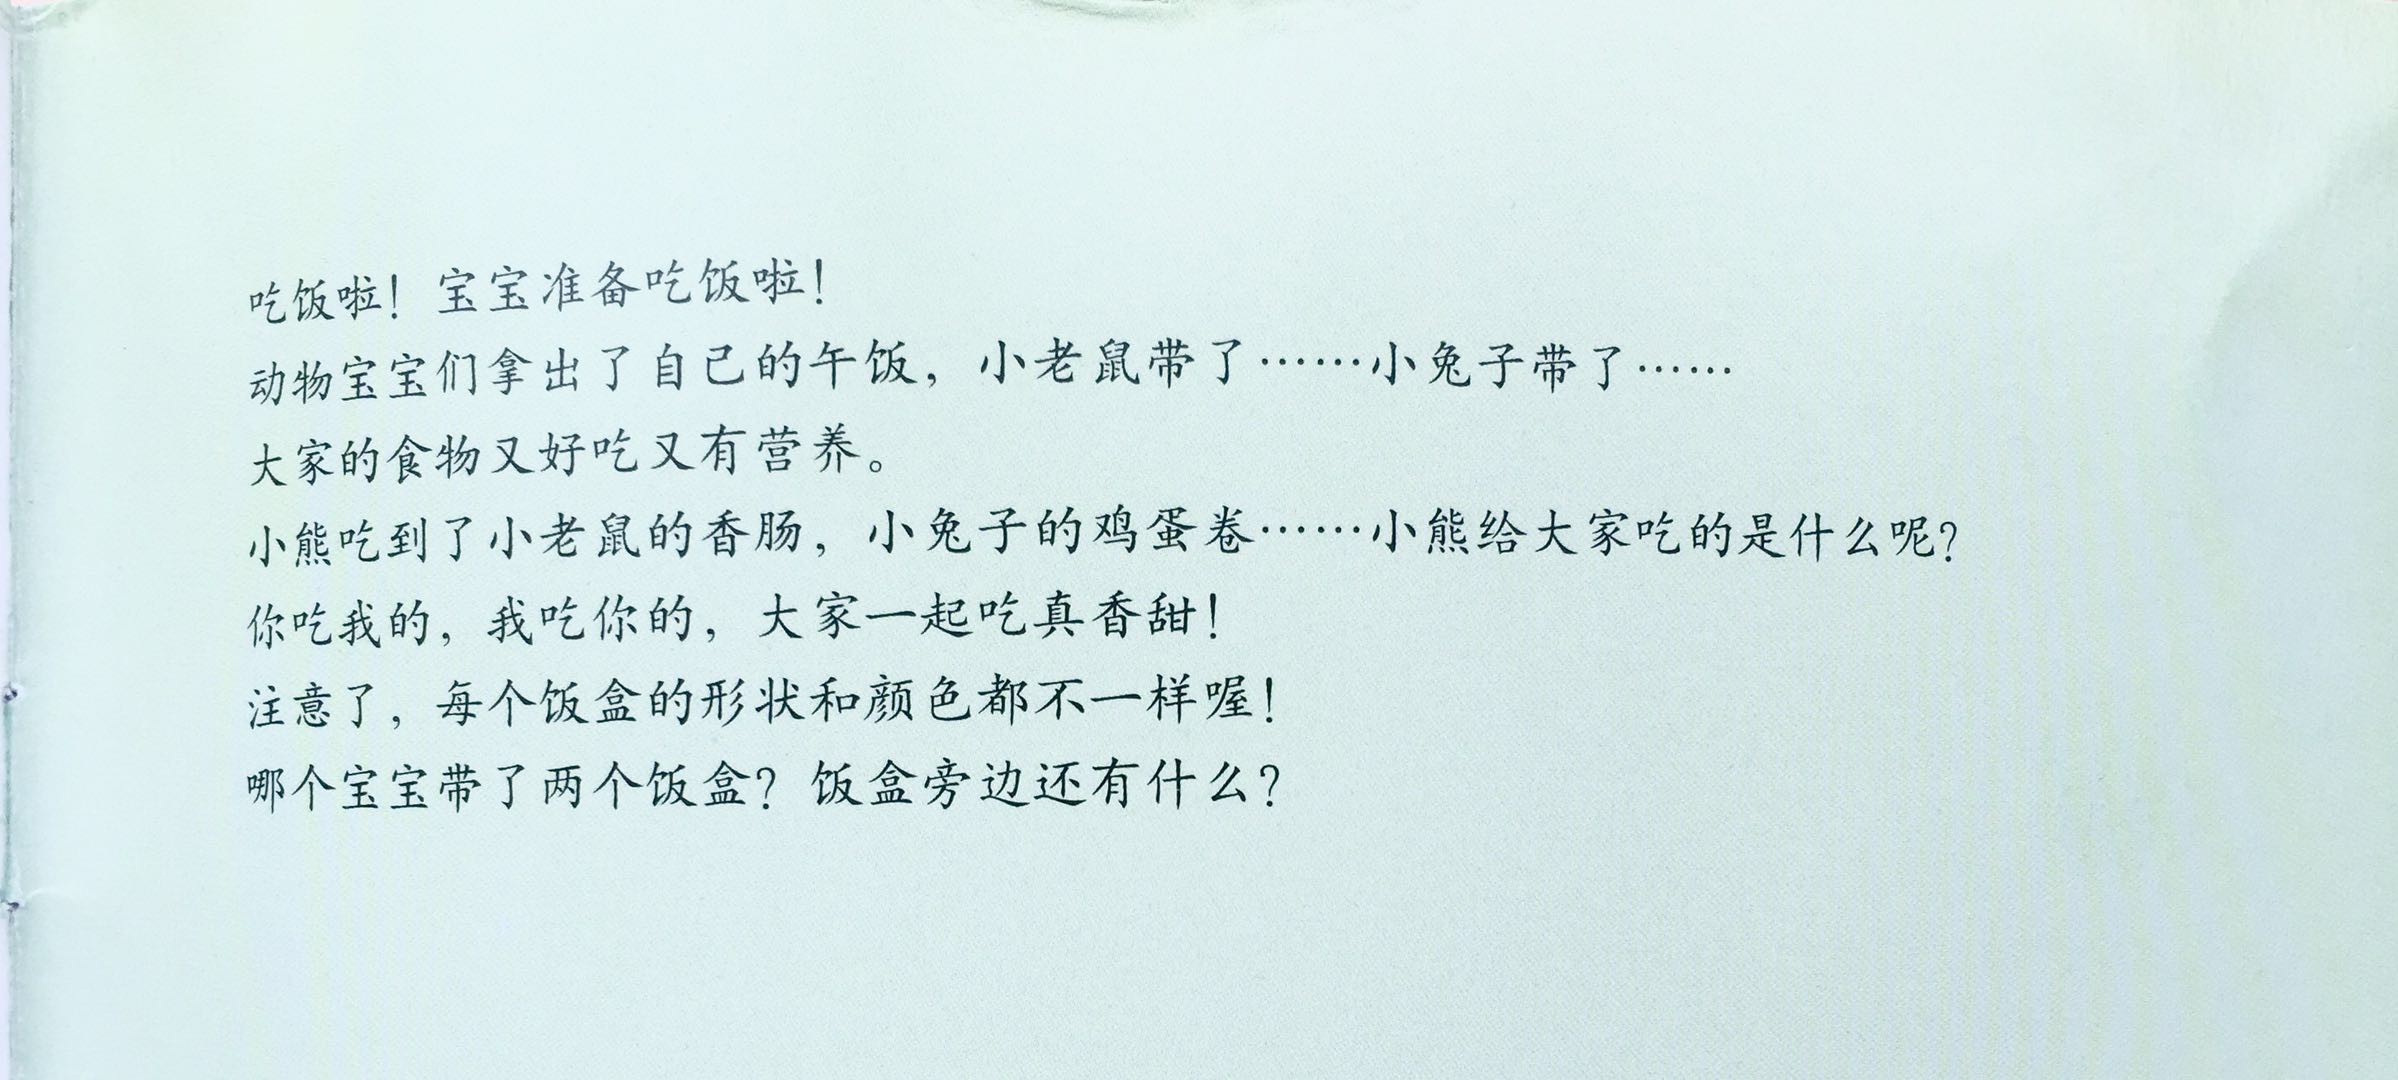 吃饭啦！宝宝准备吃饭啦！
动物宝宝们拿出了自己的午饭，小老鼠带了……小兔子带了……
大家的食物又好吃又有营养。
小熊吃到了小老鼠的香肠，小兔子的鸡蛋卷……小熊给大家吃的是什么呢？
你吃我的，我吃你的，大家一起吃真香甜！
注意了，每个饭盒的形状和颜色都不一样喔！
哪个宝宝带了两个饭盒？饭盒旁边还有什么？